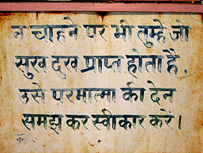 न चाहने पर भी तुम्हे जो
सुख दुख प्राप्त होता है,
उसे परमात्मा की देन
समझ कर स्वीकार करे।